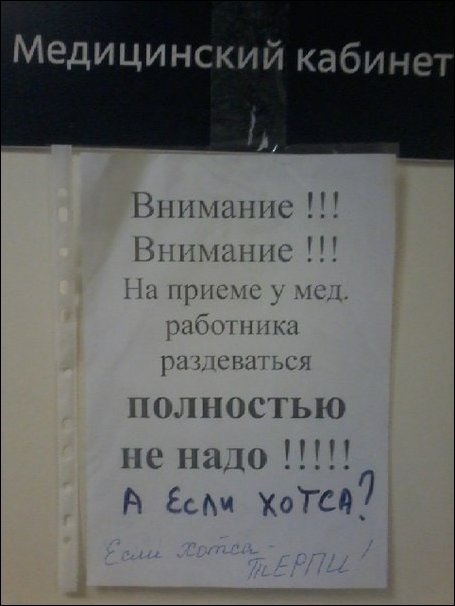 Медицинский кабинет
Внимание !!!
Внимание !!!
На приеме у мед.
работника
раздеваться
полностью
не надо !!!!!
А Если хотса?
Если Хотса -
ТЕРПИ!